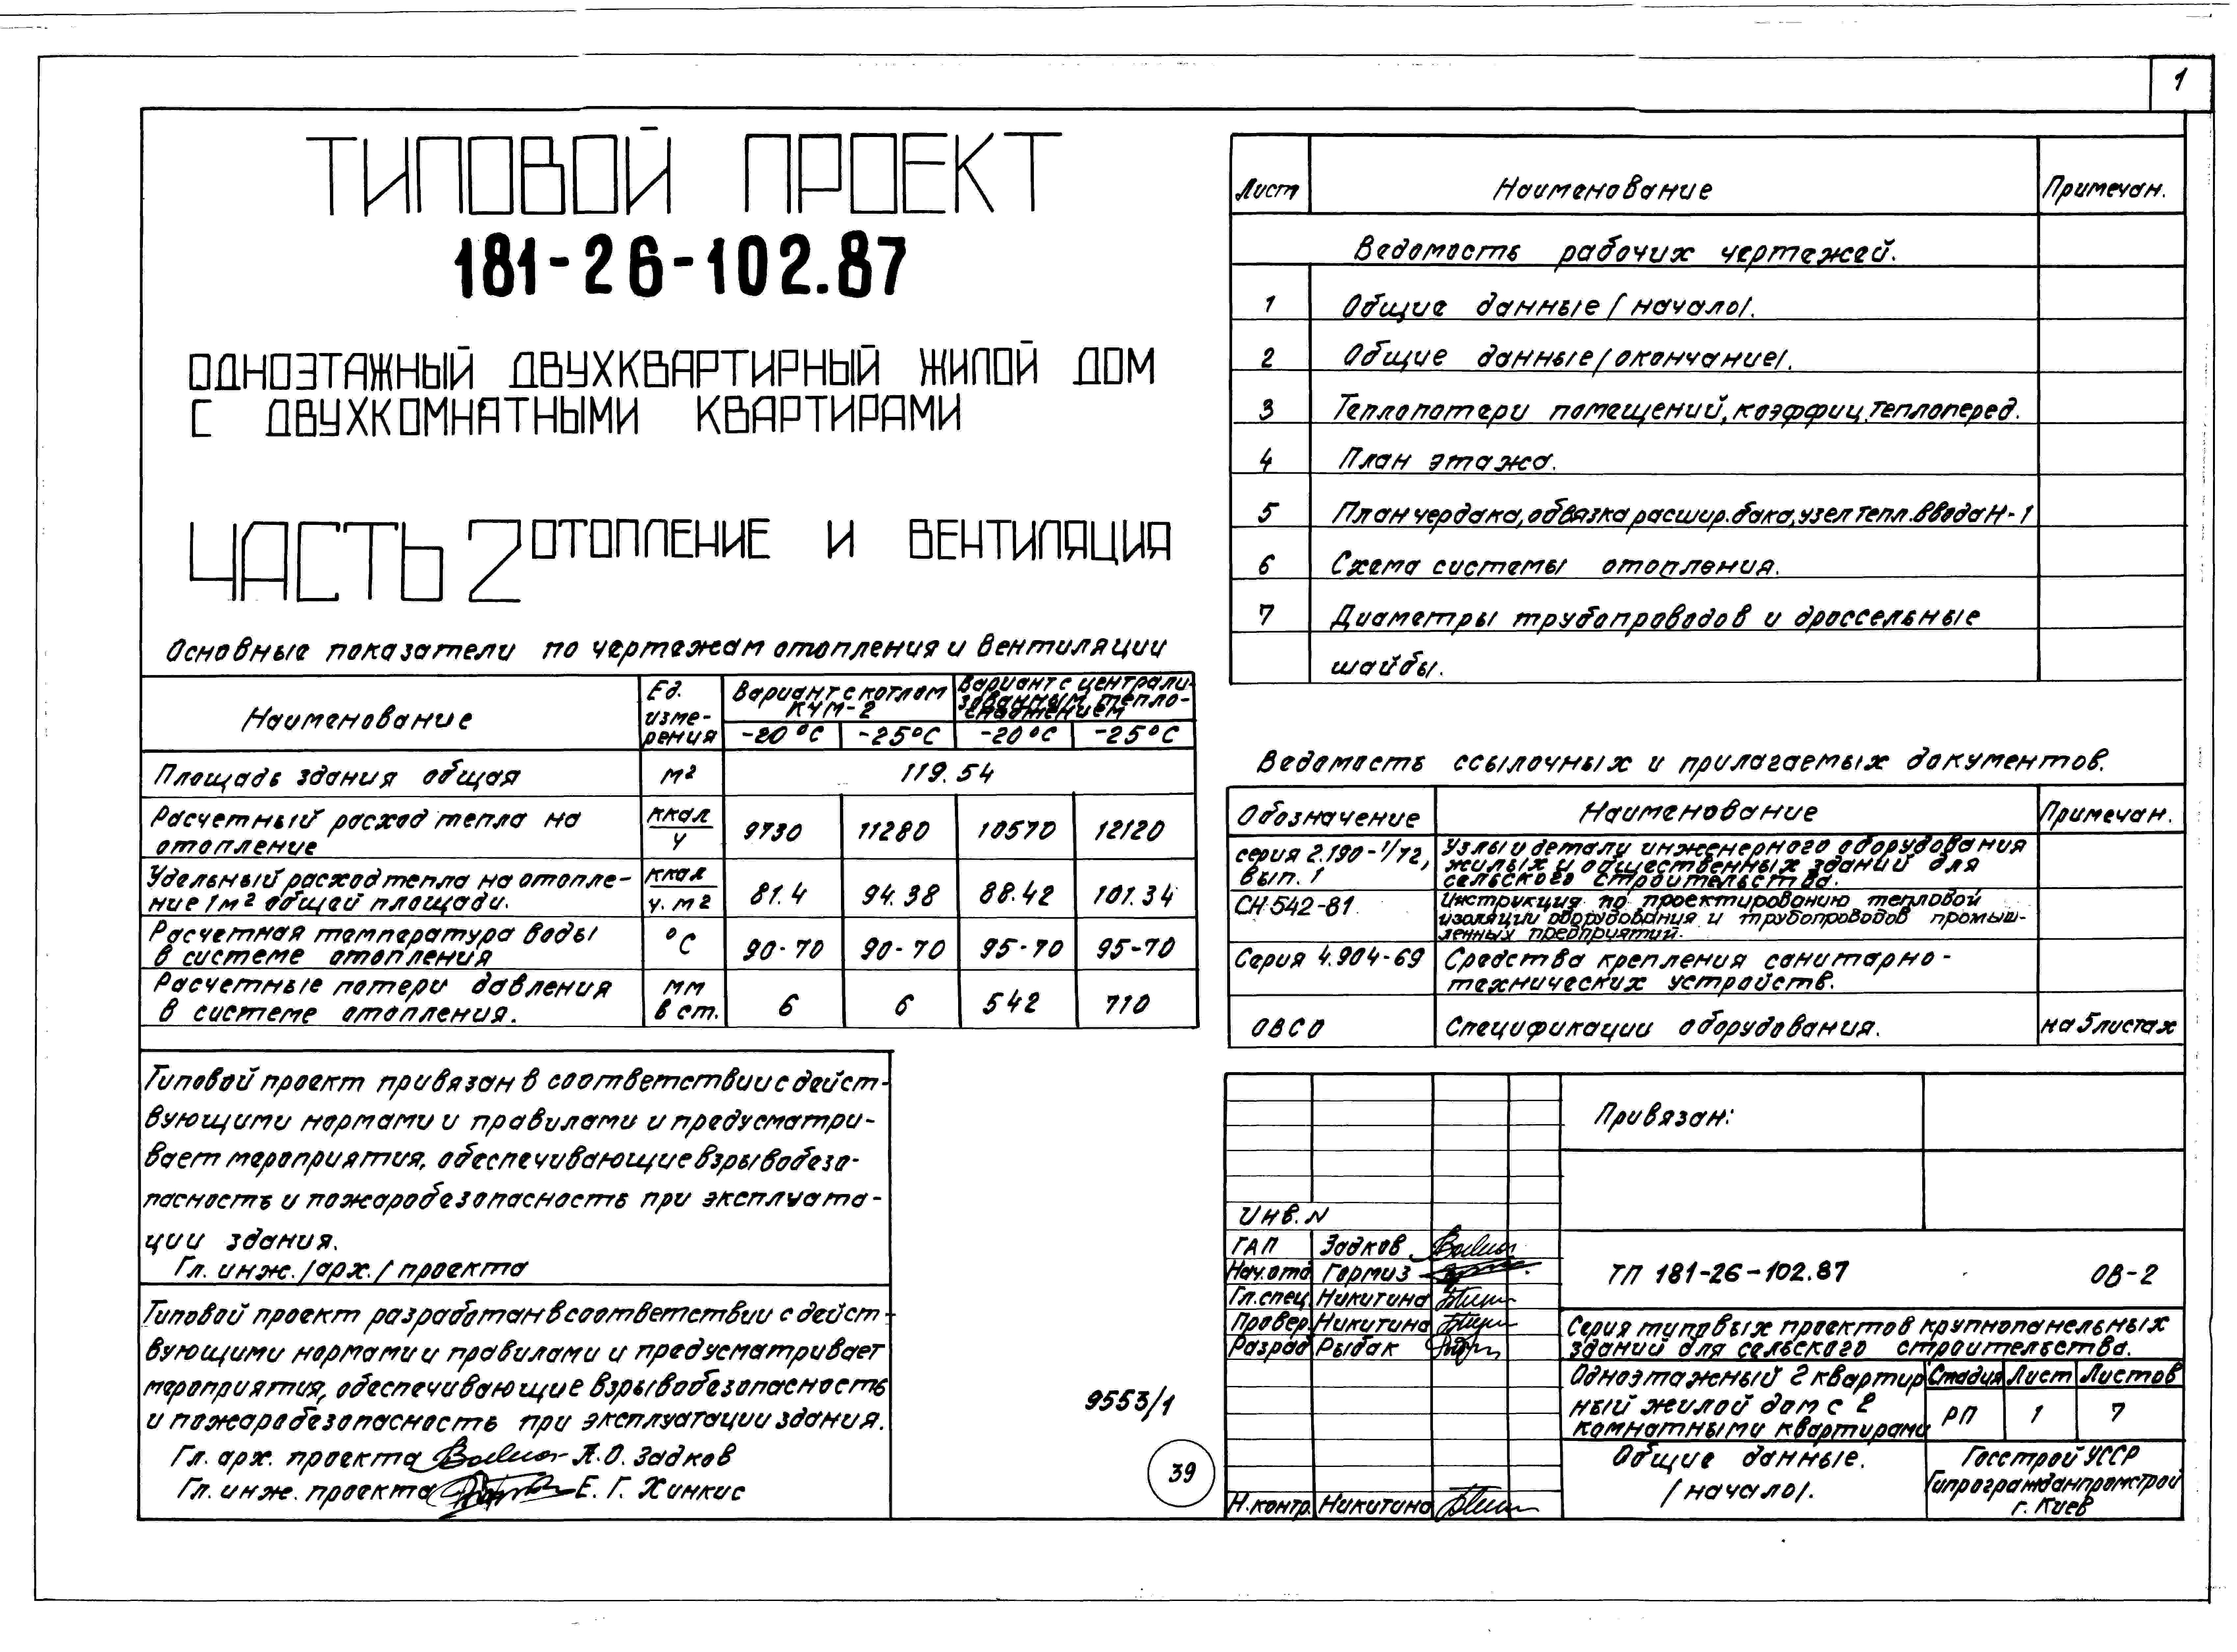 1
ТИПОВОЙ ПРОЕКТ
181-26-102.87
ОДНОЭТАЖНЫЙ ДВУХКВАРТИРНЫЙ ЖИЛОЙ ДОМ
С ДВУХКОМНАТНЫМИ КВАРТИРАМИ
ЧАСТЬ 2 ОТОПЛЕНИЕ И ВЕНТИЛЯЦИЯ
Основные показатели по чертежам отопления и вентиляции
Наименование
Ед.
изме-
рения
Вариант с котлом
КЧМ-2
Вариант с централи-
зованным тепло-
снабжением
-20°С -25°С -20°С -25°С
Площадь здания общая м2 119.54
Расчетный расход тепла на
отопление
ккал
ч
9730 11280 10570 12120
Удельный расход тепла на отопле-
ние 1м2 общей площади.
ккал
ч. м2
81.4 94.38 88.42 101.34
Расчетная температура воды
в системе отопления
°С
90-70 90-70 95-70 95-70
Расчетные потери давления
в системе отопления.
мм
в ст.
6 6 542 710
Типовой проект привязан в соответствии с дейст-
вующими нормами и правилами и предусматри-
вает мероприятия, обеспечивающие взрывобезо-
пасность и пожаробезопасность при эксплуата-
ции здания.
Гл. инж. /арх./ проекта
Типовой проект разработан в соответствии с дейст-
вующими нормами и правилами и предусматривает
мероприятия, обеспечивающие взрывобезопасность
и пожаробезопасность при эксплуатации здания.
Гл. арх. проекта А.О. Задков
Гл. инж. проекта Е. Г. Хинкис
9553/1
39
Лист Наименование Примечан.
Ведомость рабочих чертежей.
1 Общие данные /начало/.
2 Общие данные /окончание/.
3 Теплопотери помещений, коэффиц. теплоперед.
4 План этажа.
5 План чердака, обвязка расшир. бака, узел тепл. ввода Н-1
6 Схема системы отопления.
7 Диаметры трубопроводов и дроссельные
шайбы.
Ведомость ссылочных и прилагаемых документов.
Обозначение Наименование Примечан.
серия 2.190-1/72,
вып. 1
Узлы и детали инженерного оборудования
жилых и общественных зданий для
сельского строительства.
СН 542-81
Инструкция по проектированию тепловой
изоляции оборудования и трубопроводов промыш-
ленных предприятий.
Серия 4.904-69 Средства крепления санитарно-
технических устройств.
ОВСО Спецификации оборудования. на 5 листах
Привязан:
Инв. N
ГАП Задков
Нач. отд Гормиз
Гл. спец. Никитина
Провер. Никитина
Разраб Рыбак
Н. контр. Никитина
ТП 181-26-102.87 ОВ-2
Серия типовых проектов крупнопанельных
зданий для сельского строительства.
Одноэтажный 2 квартир
ный жилой дом с 2
комнатными квартирами
Стадия Лист Листов
РП 1 7
Общие данные.
/начало/.
Госстрой УССР
Гипрогражданпромстрой
г. Киев